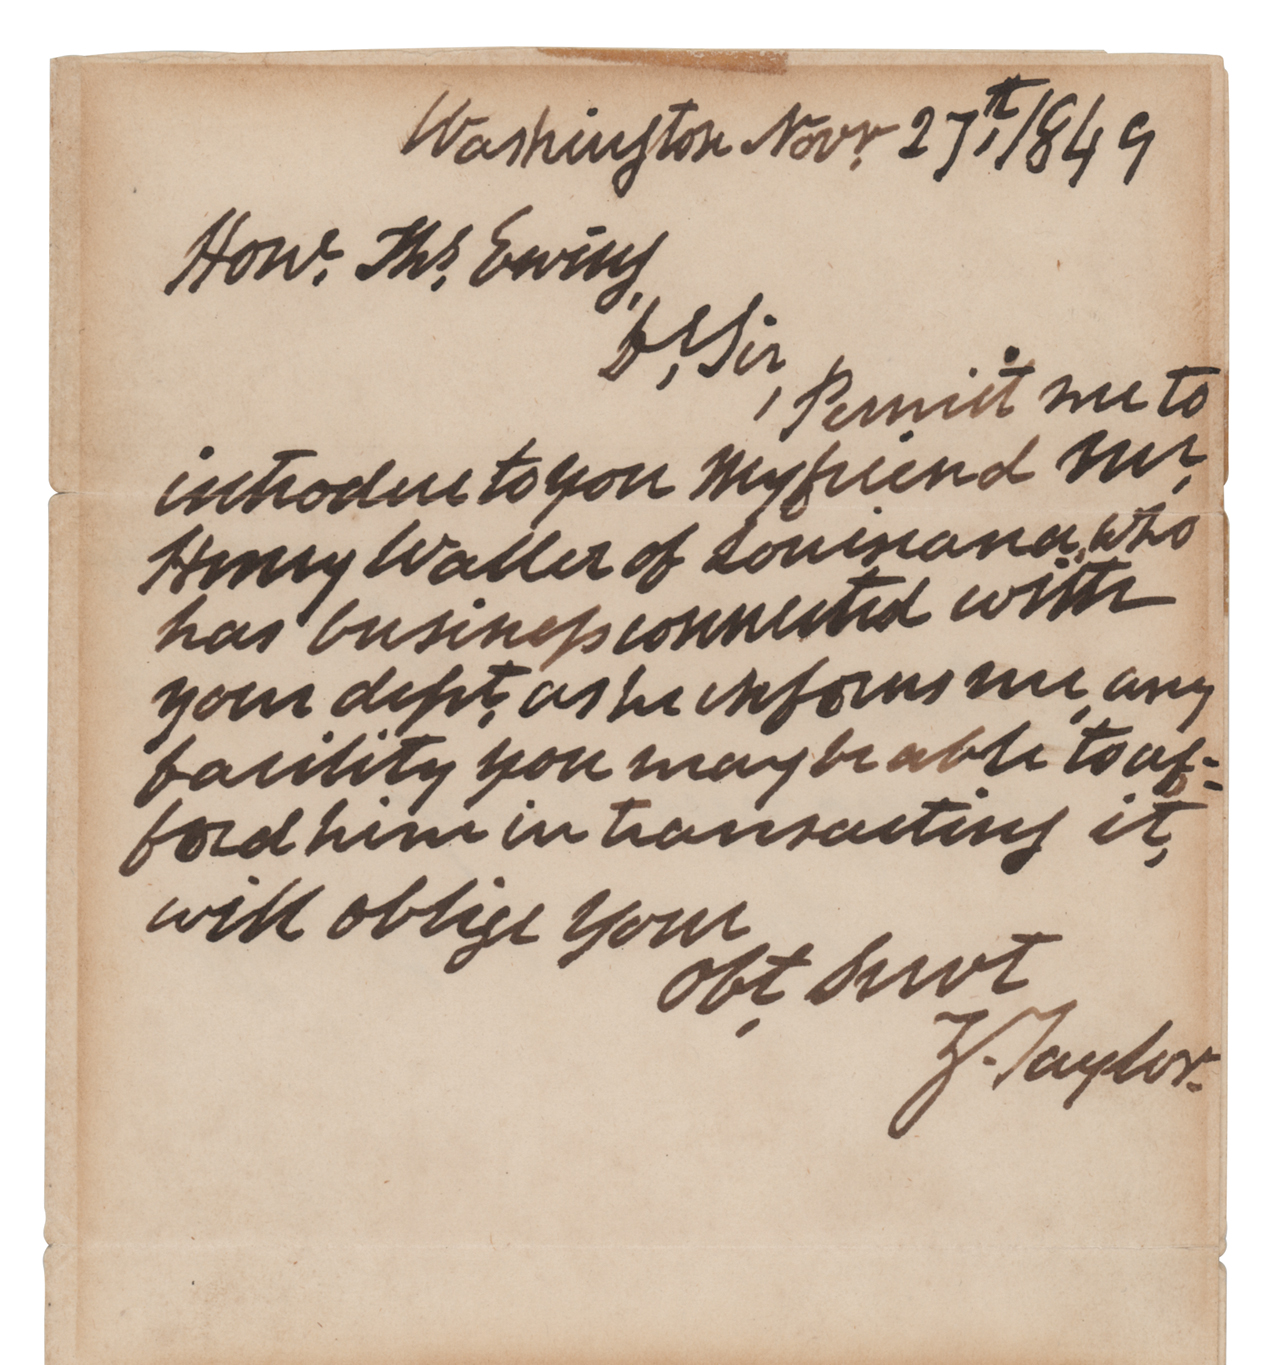 Washington Novr. 27th, 1849
Honr. Ths. Ewing,
Dr, Sir,
Permit me to
introduce to you My friend Mr,
Henry Waller of Louisiana, who
has business connected with
your dept, as he informs me, any
facility you may be able to af-
ford him in transacting it,
will oblige your
Obt, Servt
Z. Taylor.